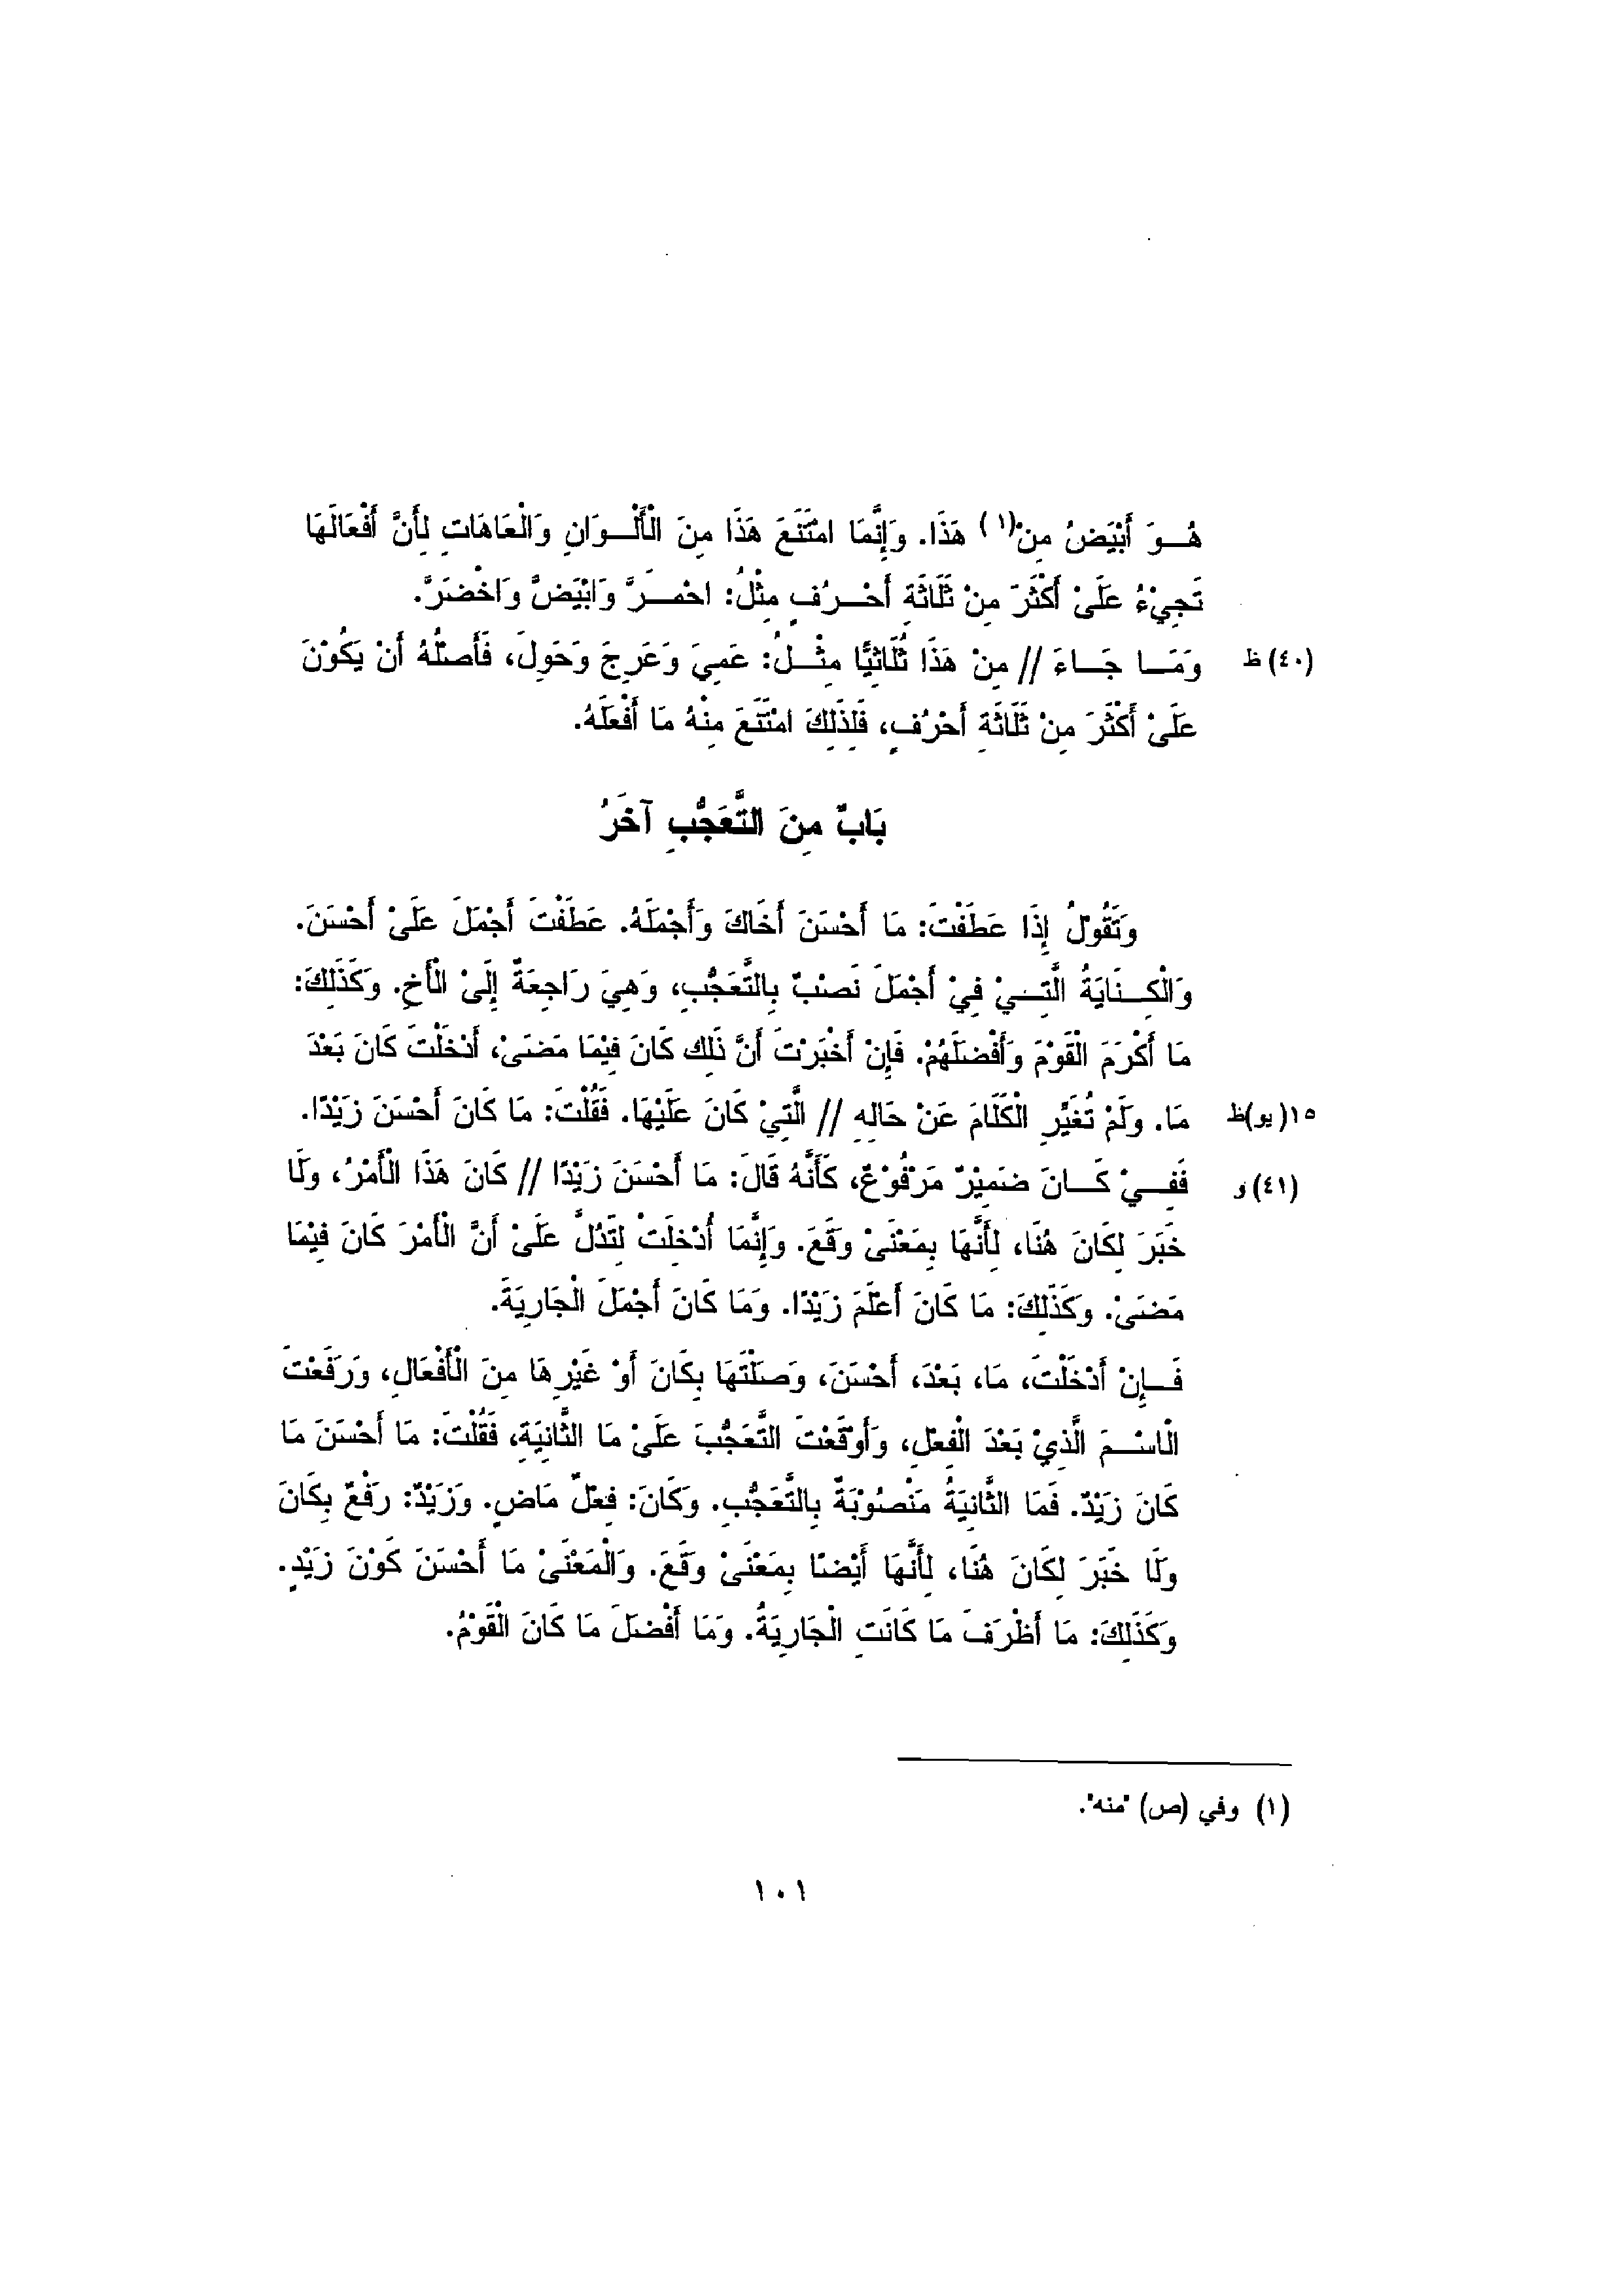 هُـوَ أَبْيَضُ مِنْ(١) هَذَا. وَإِنَّمَا امْتَنَعَ هَذَا مِنَ الْأَلْـوَانِ وَالْعَاهَاتِ لِأَنَّ أَفْعَالَهَا
تَجِيْءُ عَلَىْ أَكْثَرَ مِنْ ثَلَاثَةِ أَحْـرُفٍ مِثْلُ: احْمَـرَّ وَابْيَضَّ وَاخْضَرَّ.
(٤٠) ظ وَمَـا جَـاءَ // مِنْ هَذَا ثُلَاثِيًّا مِثْـلُ: عَمِيَ وَعَرِجَ وَحَوِلَ، فَأَصْلُهُ أَنْ يَكُوْنَ
عَلَىْ أَكْثَرَ مِنْ ثَلَاثَةِ أَحْرُفٍ، فَلِذَلِكَ امْتَنَعَ مِنْهُ مَا أَفْعَلَهُ.
بَابٌ مِنَ التَّعَجُّبِ آخَرُ
وَتَقُوْلُ إِذَا عَطَفْتَ: مَا أَحْسَنَ أَخَاكَ وَأَجْمَلَهُ. عَطَفْتَ أَجْمَلَ عَلَىْ أَحْسَنَ.
وَالْكِـنَايَةُ الَّتِـيْ فِيْ أَجْمَلَ نَصْبٌ بِالتَّعَجُّبِ، وَهِيَ رَاجِعَةٌ إِلَىْ الْأَخِ. وَكَذَلِكَ:
مَا أَكْرَمَ الْقَوْمَ وَأَفْضَلَهُمْ. فَإِنْ أَخْبَرْتَ أَنَّ ذَلِك كَانَ فِيْمَا مَضَىْ، أَدْخَلْتَ كَانَ بَعْدَ
١٥(يو)ظ مَا. وَلَمْ تُغَيِّرِ الْكَلَامَ عَنْ حَالِهِ // الَّتِيْ كَانَ عَلَيْهَا. فَقُلْتَ: مَا كَانَ أَحْسَنَ زَيْدًا.
(٤١) و فَفِـيْ كَـانَ ضَمِيْرٌ مَرْفُوْعٌ، كَأَنَّهُ قَالَ: مَا أَحْسَنَ زَيْدًا // كَانَ هَذَا الْأَمْرُ، وَلَا
خَبَرَ لِكَانَ هُنَا، لِأَنَّهَا بِمَعْنَىْ وَقَعَ. وَإِنَّمَا أُدْخِلَتْ لِتَدُلَّ عَلَىْ أَنَّ الْأَمْرَ كَانَ فِيْمَا
مَضَىْ. وَكَذَلِكَ: مَا كَانَ أَعْلَمَ زَيْدًا. وَمَا كَانَ أَجْمَلَ الْجَارِيَةَ.
فَـإِنْ أَدْخَلْتَ، مَا، بَعْدَ، أَحْسَنَ، وَصَلْتَهَا بِكَانَ أَوْ غَيْرِهَا مِنَ الْأَفْعَالِ، وَرَفَعْتَ
الْاسْـمَ الَّذِيْ بَعْدَ الْفِعْلِ، وَأَوْقَعْتَ التَّعَجُّبَ عَلَىْ مَا الثَّانِيَةِ، فَقُلْتَ: مَا أَحْسَنَ مَا
كَانَ زَيْدٌ. فَمَا الثَّانِيَةُ مَنْصُوْبَةٌ بِالتَّعَجُّبِ. وَكَانَ: فِعْلٌ مَاضٍ. وَزَيْدٌ: رَفْعٌ بِكَانَ
وَلَا خَبَرَ لِكَانَ هُنَا، لِأَنَّهَا أَيْضًا بِمَعْنَىْ وَقَعَ. وَالْمَعْنَىْ مَا أَحْسَنَ كَوْنَ زَيْدٍ.
وَكَذَلِكَ: مَا أَظْرَفَ مَا كَانَتِ الْجَارِيَةُ. وَمَا أَفْضَلَ مَا كَانَ الْقَوْمُ.
(١) وفي (ص) "منه".
١٠١